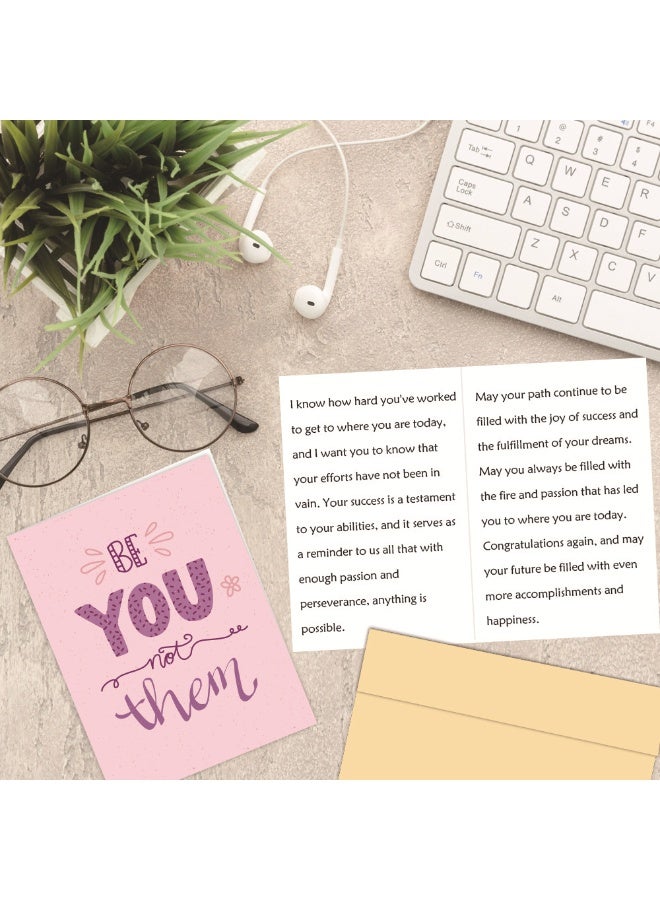 F4
1
@
2
#
3
$
4
Tab
Q
W
E
R
Caps
Lock
A
S
D
F
Shift
Z
X
C
V
Ctrl
Fn
Alt
I know how hard you've worked
to get to where you are today,
and I want you to know that
your efforts have not been in
vain. Your success is a testament
to your abilities, and it serves as
a reminder to us all that with
enough passion and
perseverance, anything is
possible.
May your path continue to be
filled with the joy of success and
the fulfillment of your dreams.
May you always be filled with
the fire and passion that has led
you to where you are today.
Congratulations again, and may
your future be filled with even
more accomplishments and
happiness.
BE
YOU
not
them